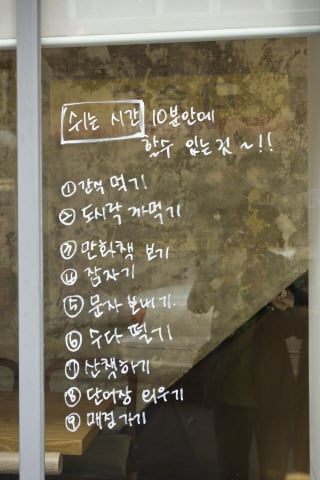 쉬는 시간 10분안에
할수 있는것 ~!!
① 간식 먹기
② 도시락 까먹기
③ 만화책 보기
④ 잠자기
⑤ 문자 보내기.
⑥ 수다 떨기
⑦ 산책하기
⑧ 단어장 외우기
⑨ 매점가기